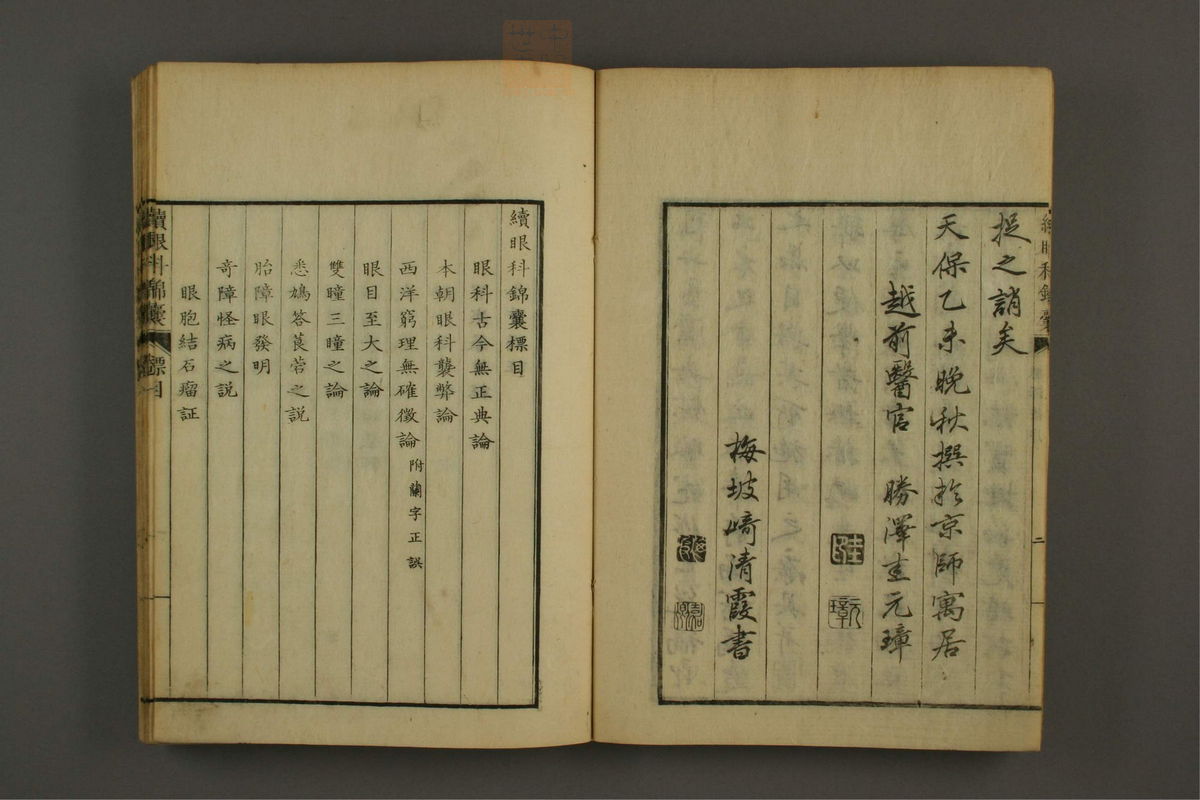 捉之誚矣
天保乙未晚秋撰於京師寓居
越前醫官 勝澤圭元璋
圭
元璋
梅坡﨑清霞書
續眼科錦囊標目
眼科古今無正典論
本朝眼科襲弊論
西洋窮理無確徵論附蘭字正誤
眼目至大之論
雙瞳三瞳之論
悉鳩答莨菪之説
胎障眼發明
奇障怪病之説
眼胞結石瘤証
續眼科錦囊 標目